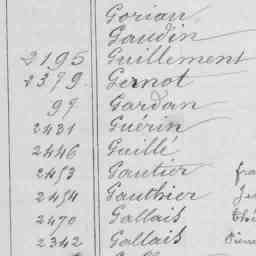 Gorian
Gaudin
2195 Guillement
2379 Gernot
99 Gardan
2431 Guérin
2446 Guillé
2453 Gautier fra
2454 Gauthier Je
2470 Gallais Thé
2342 Gallais Pierre